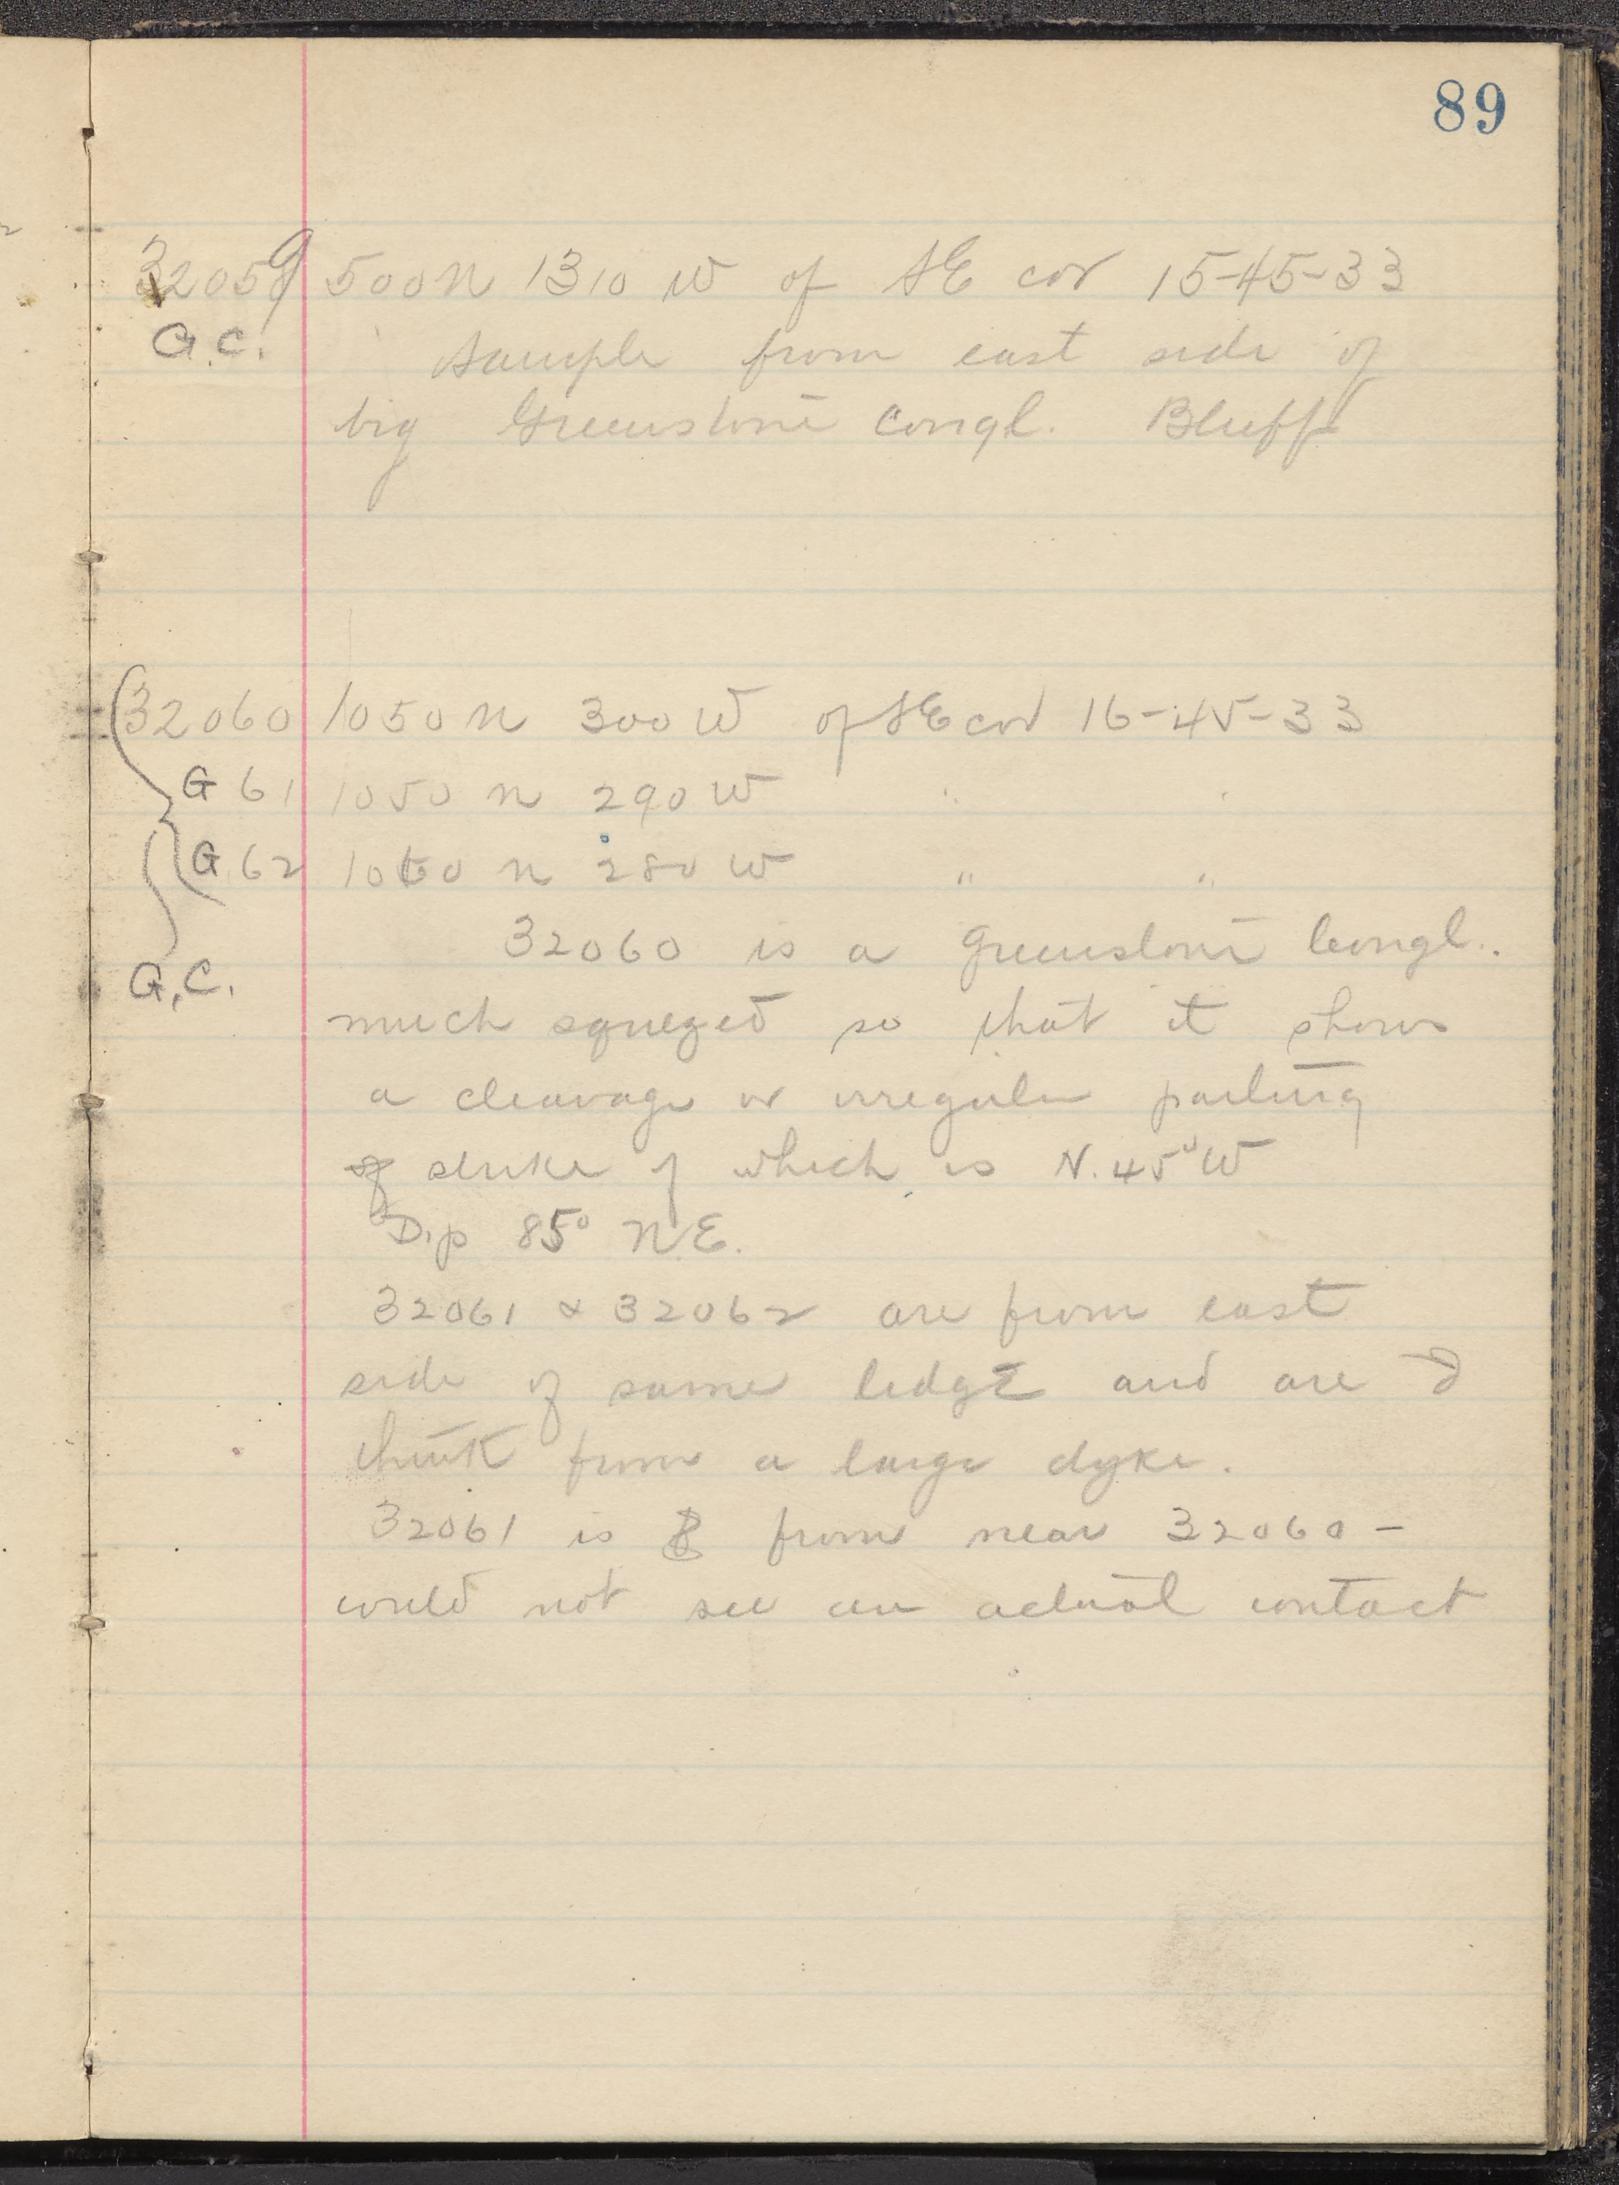 89
32059 500 N 1310 W of SE cor 15-45-33
G.C. Sample from east side of
big Greenstone Congl. Bluff
32060 1050 N 300 W of SE cor 16-45-33
G 61 1050 N 290 W " "
G 62 1060 N 280 W " "
32060 is a greenstone Congl.
G.C.
much squezed so that it shows
a cleavage or irregular parting
of strike of which is N. 45° W
Dip 85° N.E.
32061 & 32062 are from east
side of same ledge and are I
think from a large dyke.
32061 is from near 32060 -
could not see an actual contact